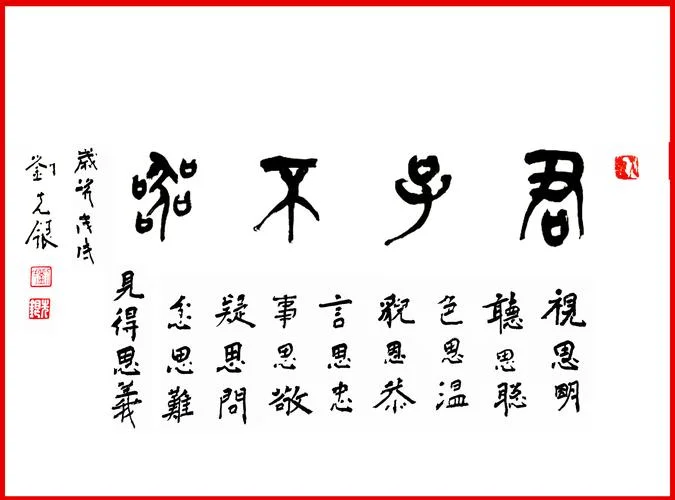 君子不器
視思明
聽思聰
色思温
貌思恭
言思忠
事思敬
疑思問
忿思難
見得思義
歲
劉克銀